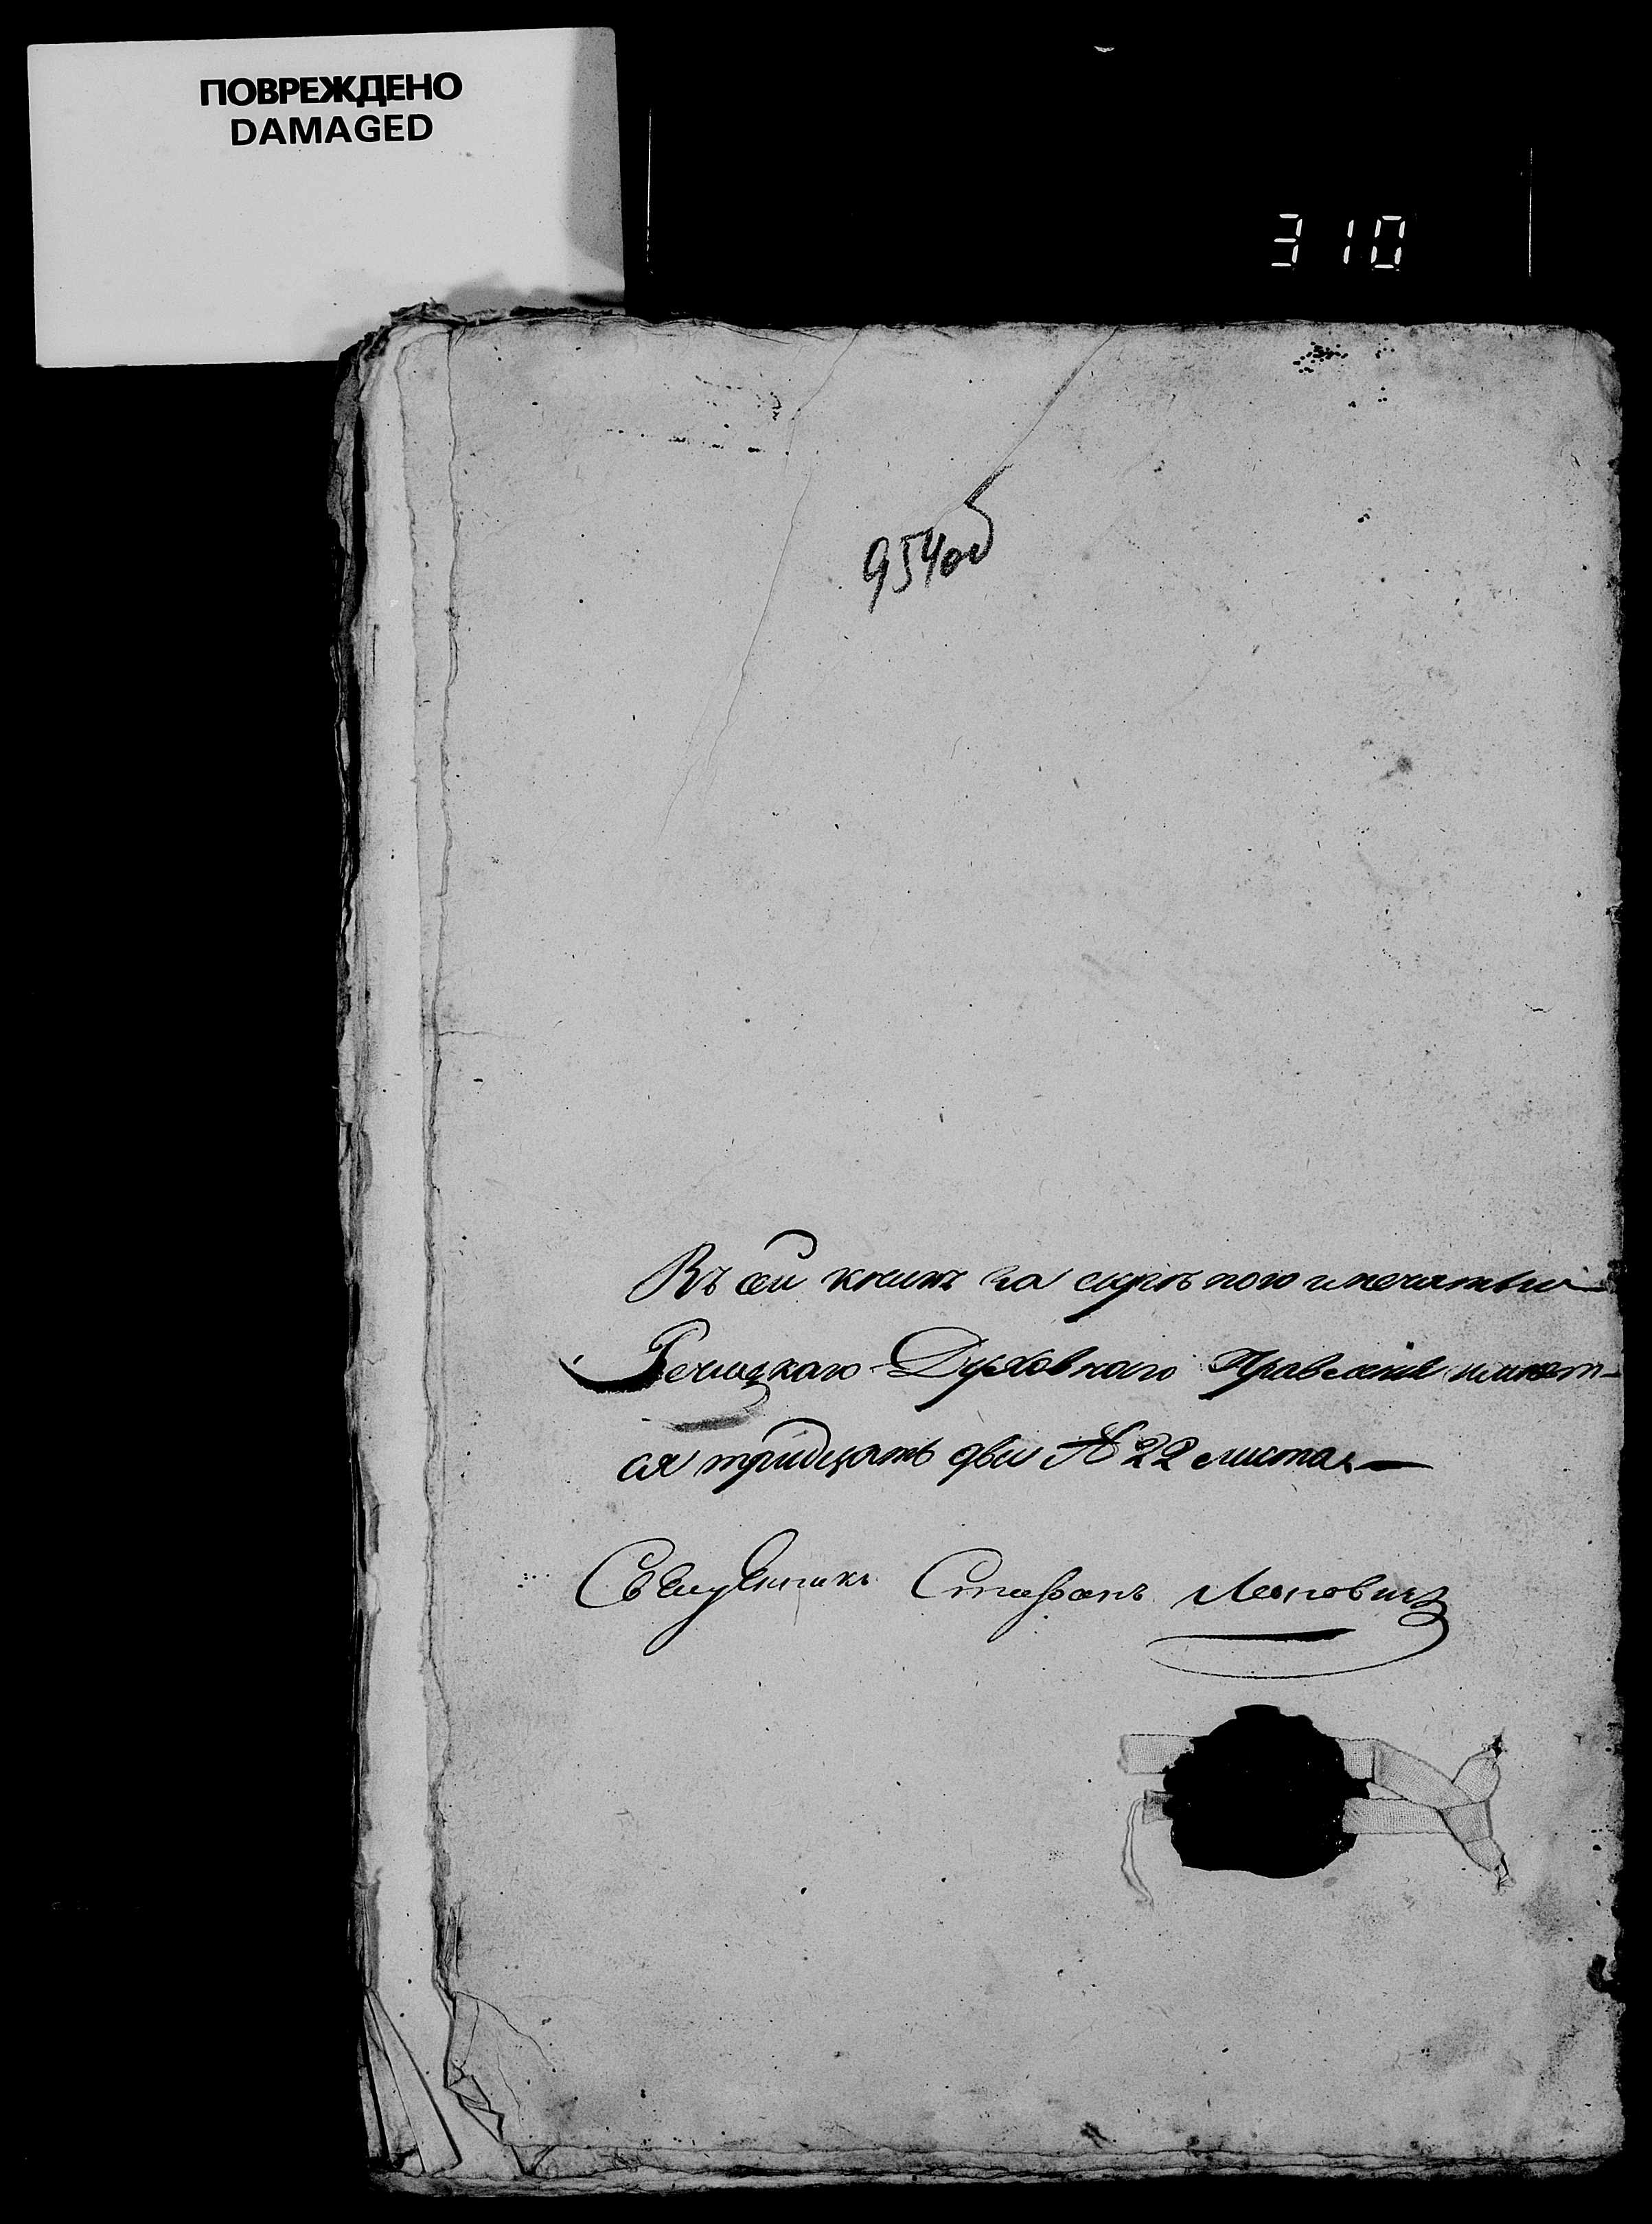 ПОВРЕЖДЕНО
DAMAGED
310
954об
Въ сей книгѣ за скрѣпою и печатью
Речицкаго Духовнаго Правленія имѣет-
ся тридцать два № 22 листа
Священникъ Стефанъ Леоновичъ